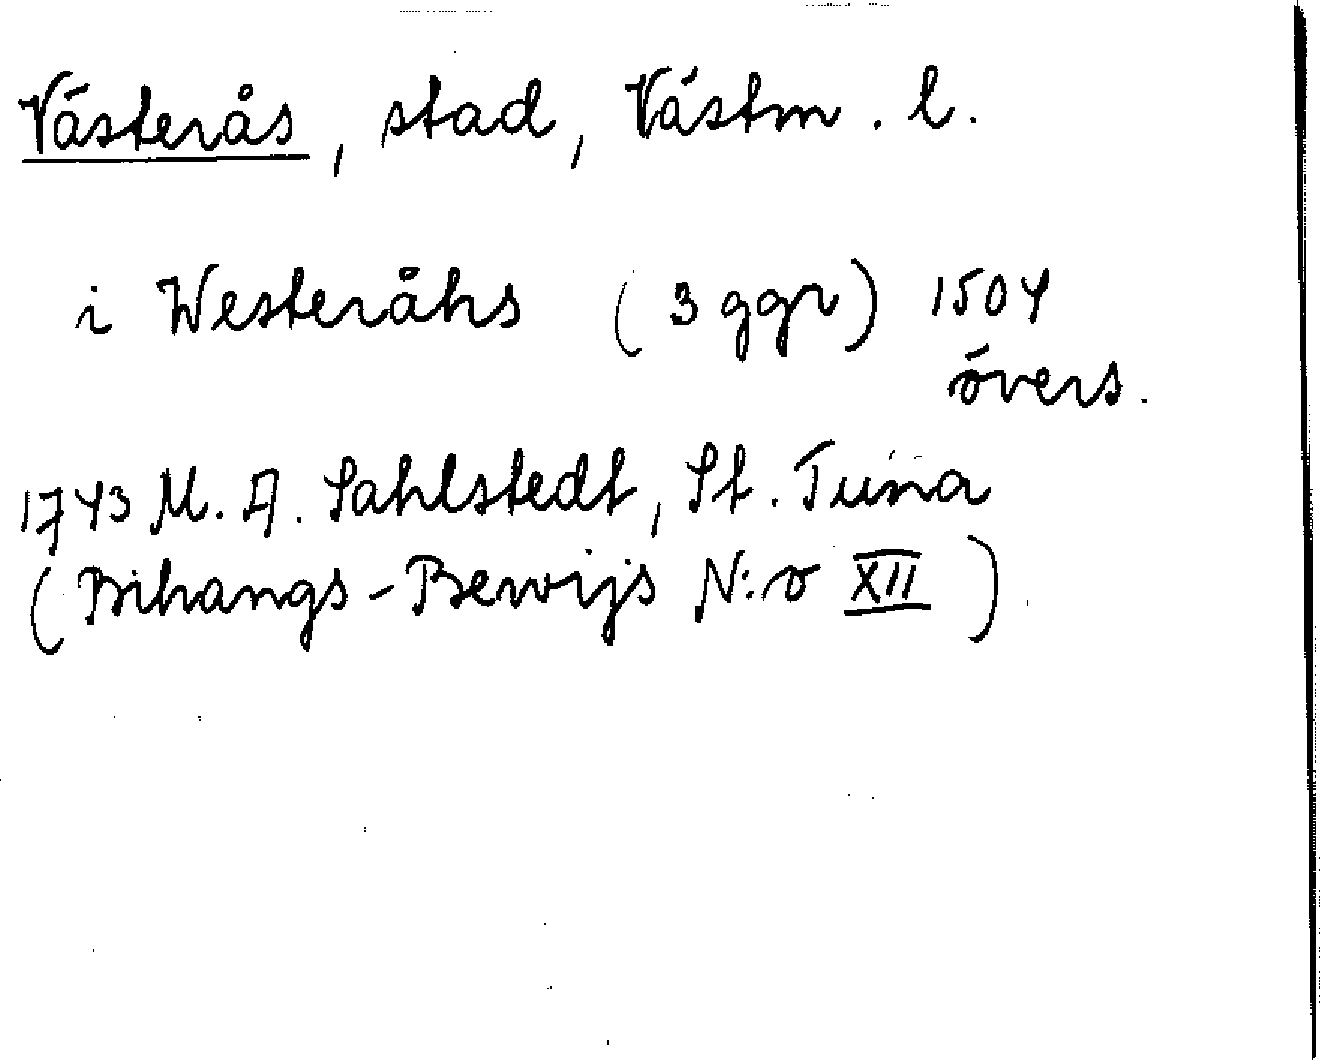 Västerås, stad, Västm. l.
i Westeråhs (3 ggr) 1504
övers.
1743 M. A. Sahlstedt, St. Tuna
(Bihangs-Bewijs N:o XII)